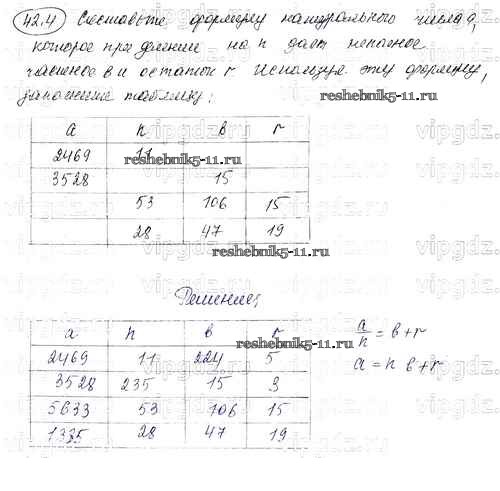 42.4 Составьте формулу натурального числа a,
которое при делении на n дает неполное
частное в и остаток r. Используя эту формулу,
заполните таблицу:
a n в r
2469 11
3528 15
53 106 15
28 47 19
reshebnik5-11.ru
Решение:
a n в r
2469 11 224 5
3528 235 15 3
5633 53 106 15
1335 28 47 19
a/n = в + r
a = n в + r